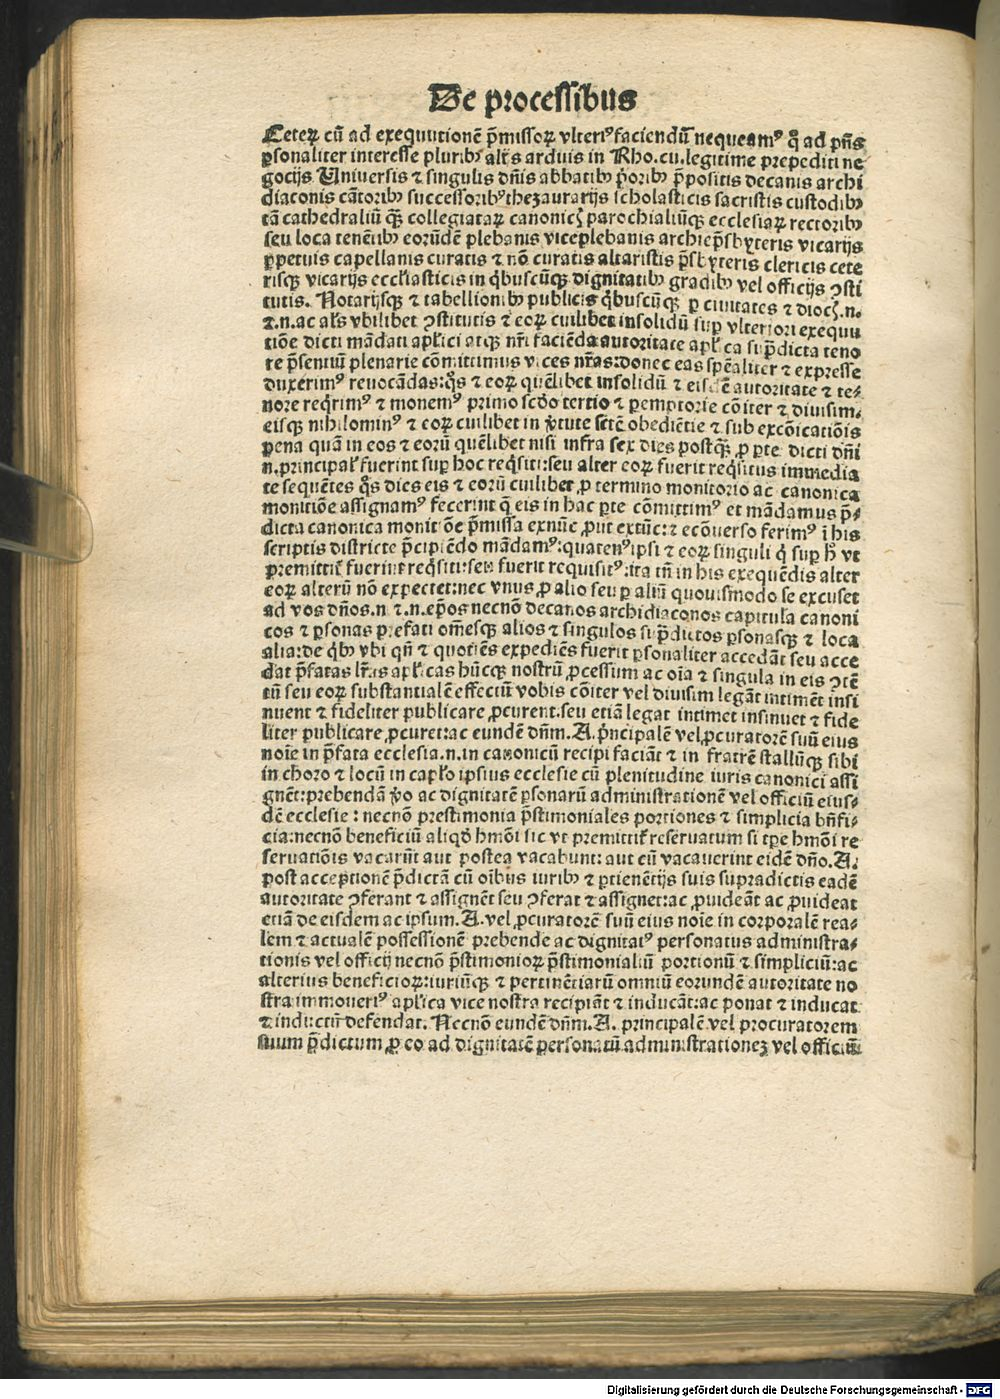 De processibus
Ceterꝝ cũ ad exequutionẽ p̃missoꝝ vlteriꝰ faciendũ nequeamꝰ qͣ ad pñs
ꝑsonaliter interesse pluribꝫ al̃s arduis in Rho.cu.legitime prepediti ne
gocijs Uniuersis ⁊ singulis dñis abbatibꝫ p̃oribꝫ p̃positis decanis archi
diaconis cãtoribꝫ successoribꝫ thezaurarijs scholasticis sacristis custodibꝫ
tã cathedraliũ qꝫ collegiataꝝ canonicꝭ parochialiũqꝫ ecclesiaꝝ rectoribꝫ
seu loca tenẽtibꝫ eorũdẽ plebanis viceplebanis archiep̃sbyteris vicarijs
ꝑpetuis capellanis curatis ⁊ nõ curatis altaristis p̃sbyteris clericis cete
risqꝫ vicarijs eccl̃iasticis in qͥbuscũqꝫ dignitatibꝫ gradibꝫ vel officijs ꝯsti
tutis. Notarijsqꝫ ⁊ tabellionibꝫ publicis qͥbuscũqꝫ ꝑ ciuitates ⁊ diocꝭ.n.
⁊.n.ac al̃s vbilibet ꝯstitutis ⁊ eoꝝ cuilibet insolidũ suꝑ vlteriori exequu
tiõe dicti mãdati apl̃ici atqꝫ nr̃i faciẽda autoritate apl̃ica sup̃dicta teno
re p̃sentiũ plenarie cõmittimus vices nr̃as:donec eas spẽaliter ⁊ expresse
duxerimꝰ reuocãdas:qͦs ⁊ eoꝝ quẽlibet insolidũ ⁊ eisdẽ autoritate ⁊ te-
nore reqͥrimꝰ ⁊ monemꝰ primo scd̃o tertio ⁊ ꝑemptorie cõiter ⁊ diuisim.
eisqꝫ nihilominꝰ ⁊ eoꝝ cuilibet in ṽtute sctẽ obediẽtie ⁊ sub excõicatiõis
pena quã in eos ⁊ eorũ quẽlibet nisi infra sex dies postqꝫ ꝓ ꝑte dicti dñi
n.principal̃ fuerint suꝑ hoc reqͥsiti:seu alter eoꝝ fuerit reqͥsitus immedia
te sequẽtes qͦs dies eis ⁊ eorũ cuilibet ꝓ termino monitorio ac canonica
monitiõe assignamꝰ fecerint q̃ eis in hac ꝑte cõmittimꝰ et mãdamus p̃-
dicta canonica monitiõe p̃missa exnũc ꝓut extũc:⁊ ecõuerso ferimꝰ ĩ his
scriptis districte p̃cipiẽdo mãdamꝰ:quatenꝰ ipsi ⁊ eoꝝ singuli qͥ suꝑ hͦ vt
premittit̃ fuerint reqͥsiti:seu fuerit requisitꝰ:ita tñ in his exequẽdis alter
eoꝝ alterũ nõ expectet:nec vnus ꝓ alio seu ꝑ aliũ quouismodo se excuset
ad vos dños.n ⁊.n.ep̃os necnõ decanos archidiaconos capitul̃a canoni
cos ⁊ ꝑsonas prefati om̃esqꝫ alios ⁊ singulos sup̃dictos ꝑsonasqꝫ ⁊ loca
alia:de qͥbꝫ vbi qñ ⁊ quotiẽs expediẽs fuerit ꝑsonaliter accedãt seu acce
dat p̃fatas lr̃as apl̃icas hũcqꝫ nostrũ ꝓcessum ac oĩa ⁊ singula in eis ꝯtẽ
tũ seu eoꝝ substantialẽ effectũ vobis cõiter vel diuisim legãt intimẽt insi
nuent ⁊ fideliter publicare ꝓcurent.seu etiã legat intimet insinuet ⁊ fide
liter publicare ꝓcuret:ac eundẽ dñm.A.p̃ncipalẽ vel ꝓcuratorẽ suũ eius
noĩe in p̃fata ecclesia.n.in canonicũ recipi faciãt ⁊ in fratrẽ stallũqꝫ sibi
in choro ⁊ locũ in capl̃o ipsius ecclesie cũ plenitudine iuris canonici assi
gnẽt:prebendã ṽo ac dignitatẽ ꝑsonatũ administrationẽ vel officiũ eius-
dẽ ecclesie: necnõ prestimonia p̃stimoniales portiones ⁊ simplicia bñfi-
cia:necnõ beneficiũ aliqͦd hm̃õi sic vt premittit̃ reseruatum si tꝑe hm̃õi re
seruatiõis vacarũt aut postea vacabunt: aut cũ vacauerint eidẽ dño.A.
post acceptionẽ p̃dictã cũ oĩbus iuribꝫ ⁊ ꝑtinẽtijs suis supradictis eadẽ
autoritate ꝯferant ⁊ assignẽt seu ꝯferat ⁊ assignet:ac ꝓuideãt ac ꝓuideat
etiã de eisdem ac ipsum.A.vel ꝓcuratorẽ suũ eius noĩe in corporalẽ rea-
lem ⁊ actualẽ possessionẽ prebende ac dignitatꝰ personatus administra-
tionis vel officij necnõ p̃stimonioꝝ p̃stimonialiũ portionũ ⁊ simpliciũ:ac
alterius beneficioꝝ:iuriũqꝫ ⁊ pertinẽtiarũ omniũ eorundẽ autoritate no
stra immoueriꝰ apl̃ica vice nostra recipiãt ⁊ inducãt:ac ponat ⁊ inducat
⁊ inductũ defendat. Necnõ eundẽ dñm.A. principalẽ vel procuratorem
suum p̃dictum ꝓ eo ad dignitatẽ ꝑsonatũ administrationeꝫ vel officiũ